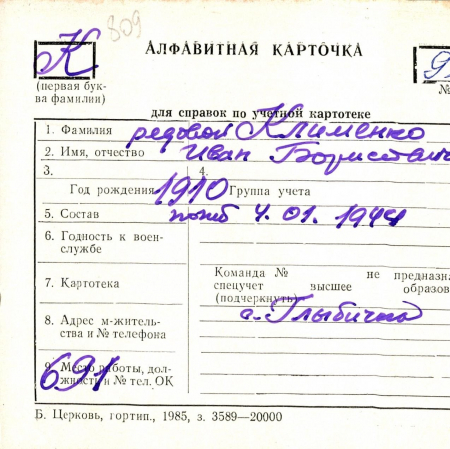 К
809
АЛФАВИТНАЯ КАРТОЧКА
9
(первая бук-
ва фамилии)
№
для справок по учетной картотеке
1. Фамилия рядовой Клименко
2. Имя, отчество Иван Борисович
3. Год рождения 1910
4. Группа учета
5. Состав погиб 4. 01. 1944
6. Годность к воен-
службе
7. Картотека
Команда № не предназна
спецучет высшее образов
(подчеркнуть)
8. Адрес м-жительс-
тва и № телефона
с. Глыбичка
9. Место работы, дол-
жность и № тел. ОК
691
Б. Церковь, гортип., 1985, з. 3589—20000